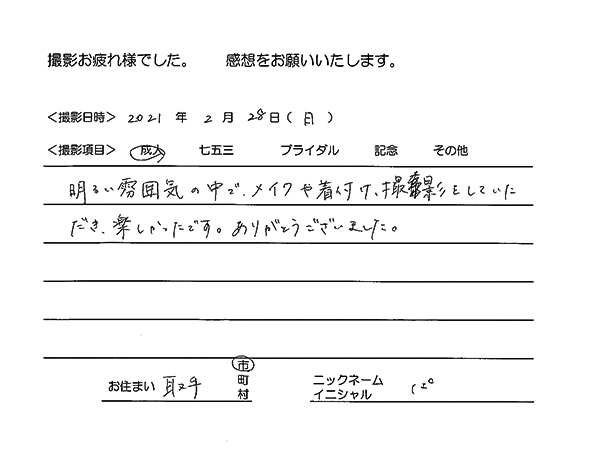 撮影お疲れ様でした。 感想をお願いいたします。
＜撮影日時＞ 2021 年 2 月 28日（日）
＜撮影項目＞ 成人 七五三 ブライダル 記念 その他
明るい雰囲気の中で、メイクや着付け、撮影をしていた
だき、楽しかったです。ありがとうございました。
お住まい 取手 市町村 ニックネーム イニシャル